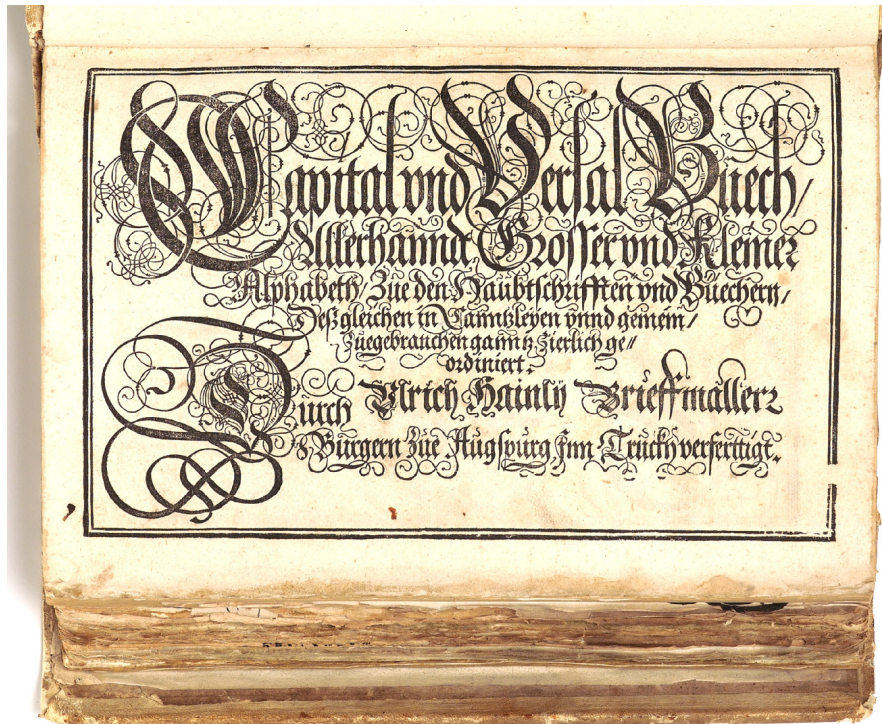 Capital vnd Versal Buech/
Allerhannd Grosser vnd Kleiner
Alphabeth/ Zue den Haubtschrifften vnd Buechern/
Deßgleichen in Canntzleyen vnnd gemein/
Zuegebrauchen ganntz Zierlich ge//
ordiniert.
Durch Vlrich Hainly Brieffmallerr
Burgern Zue Augspurg Inn Truckh verferttigt.